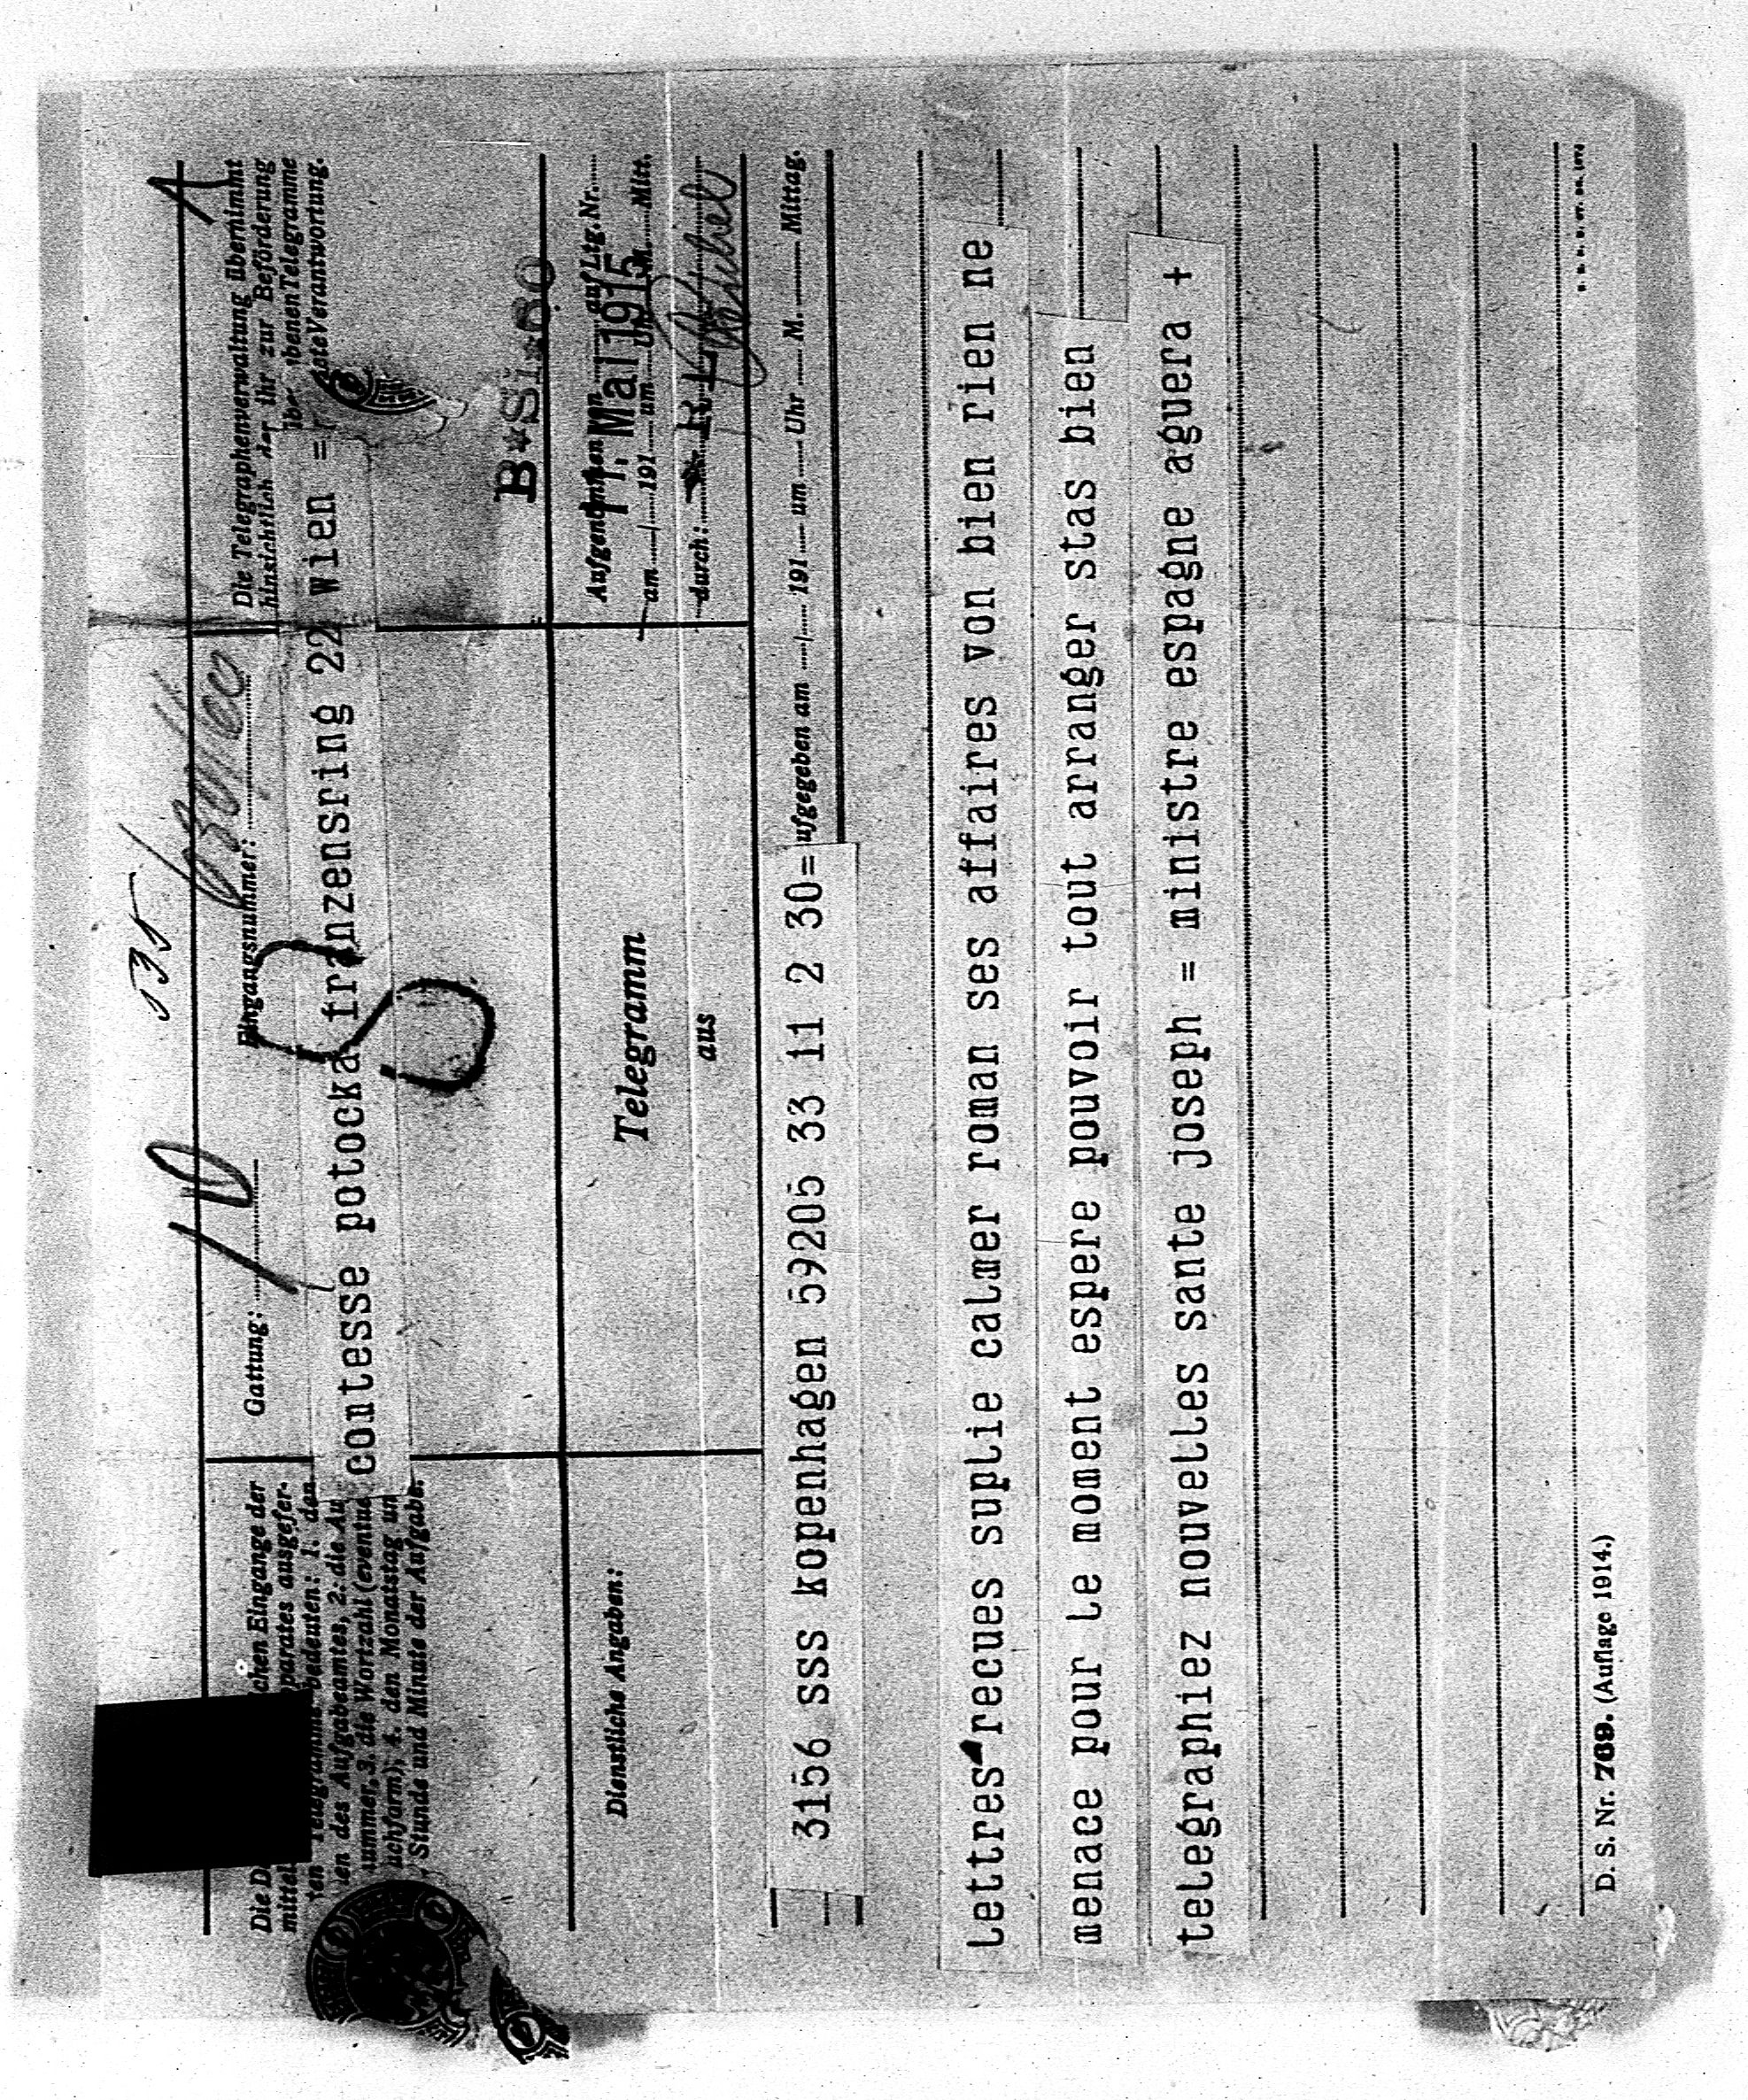 535
Die D chen Eingange der
mittel parates ausgefer-
ten Telegramms bedeuten: 1. den
en des Aufgabeamtes, 2. die Au
ummer, 3. die Wortzahl (eventue
uchform), 4. den Monatstag un
Stunde und Minute der Aufgabe.
Gattung:
Eingangsnummer:
Die Telegraphenverwaltung übernimmt
hinsichtlich der ihr zur Beförderung
übergebenen Telegramme
Verantwortung.
contesse potocka franzensring 22 wien =
Dienstliche Angaben:
Telegramm
aus
Aufgenommen auf Ltg. Nr.
11. Mai 1915
am / 191 um Mitt.
durch:
3156 sss kopenhagen 59205 33 11 2 30=
ufgegeben am / 191 um Uhr M. Mittag.
lettres recues suplie calmer roman ses affaires von bien rien ne
menace pour le moment espere pouvoir tout arranger stas bien
telegraphiez nouvelles sante joseph = ministre espagne aguera +
D. S. Nr. 769. (Auflage 1914.)